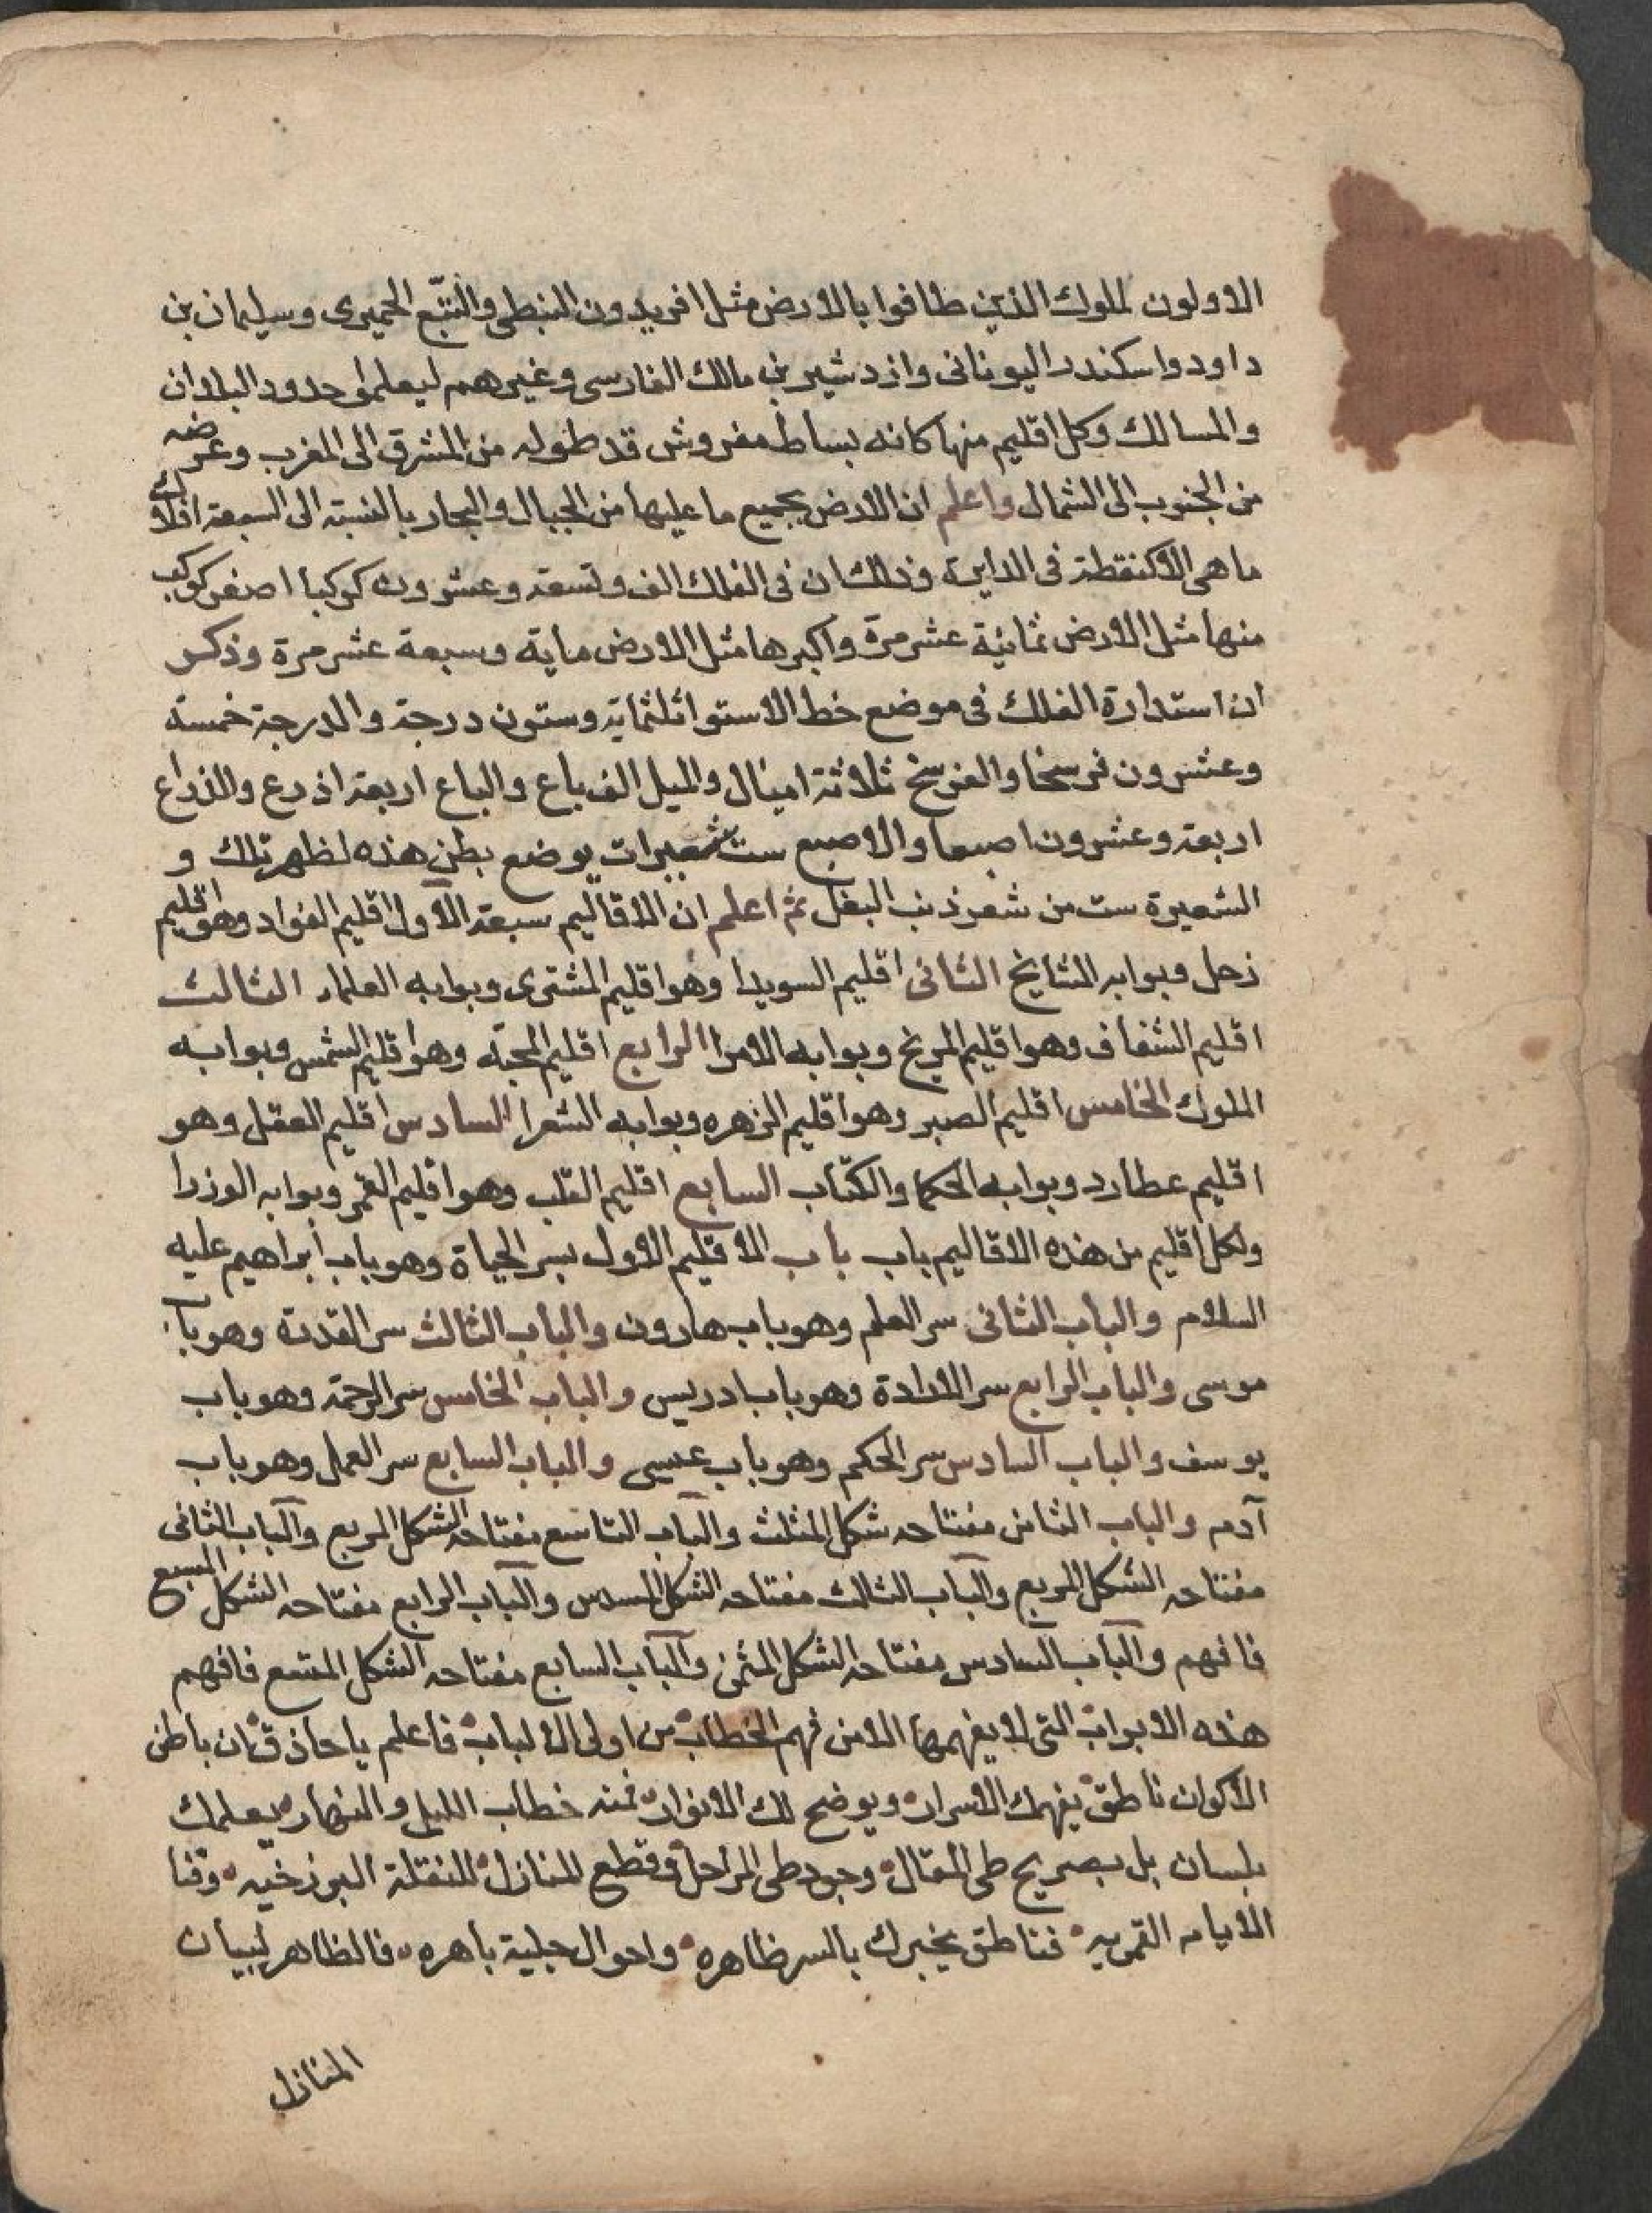 الاولون لملوك الذين طافوا بالارض مثل افريدون النبطى والتبّع الحميرى وسليمان بن
داود واسكندر اليونانى وازدشير بن مالك الفارسى وغيرهم ليعلموا حدود البلدان
والمسالك وكل اقليم منها كانه بساط مفروش قد طوله من المشرق الى المغرب وعرضه
من الجنوب الى الشمال واعلم ان الارض بجميع ما عليها من الجبال والبحار بالنسبة الى السبعة افلاك
ما هى الا كنقطة فى الدايرة وذلك ان فى الفلك الف وتسعة وعشرون كوكبا اصغر كوكب
منها مثل الارض ثمانية عشر مرة واكبرها مثل الارض ماية وسبعة عشر مرة وذكر
ان استدارة الفلك فى موضع خط الاستوا ثلثماية وستون درجة والدرجة خمسة
وعشرون فرسخا والفرسخ ثلاثة اميال والميل الف باع والباع اربعة اذرع والذراع
اربعة وعشرون اصبعا والاصبع ست شعيرات يوضع بطن هذه لظهر تلك و
الشعيرة ست من شعر ذنب البغل ثم اعلم ان الاقاليم سبعة الاول اقليم الفواد وهو اقليم
زحل وبوابه المشايخ الثانى اقليم السويدا وهو اقليم المشترى وبوابه العلماء الثالث
اقليم الشغاف وهو اقليم المريخ وبوابه الامرا الرابع اقليم المحبّة وهو اقليم الشمس وبوابه
الملوك الخامس اقليم الصبر وهو اقليم الزهره وبوابه الشعرا السادس اقليم العقل وهو
اقليم عطارد وبوابه الحكما والكتّاب السابع اقليم القلب وهو اقليم القمر وبوابه الوزرا
ولكل اقليم من هذه الاقاليم باب باب الاقليم الاول بسر الحياة وهو باب ابراهيم عليه
السلام والباب الثانى سر العلم وهو باب هارون والباب الثالث سر القدرة وهو باب
موسى والباب الرابع سر الارادة وهو باب ادريس والباب الخامس سر الرحمة وهو باب
يوسف والباب السادس سر الحكم وهو باب عيسى والباب السابع سر العمل وهو باب
آدم والباب الثامن مفتاحه شكل المثلث والباب التاسع مفتاحه الشكل المربع والباب الثانى
مفتاحه الشكل المربع والباب الثالث مفتاحه الشكل المسدس والباب الرابع مفتاحه الشكل المسبع
فافهم والباب السادس مفتاحه الشكل المثمن والباب السابع مفتاحه الشكل المتسع فافهم
هذه الابواب التى لا يفهمها الا من فهم الخطاب من اولى الالباب فاعلم يا حاذق ان باطن
الاكوان ناطق يفهمك الاسرار ويوضح لك الانوار فمنه خطاب الليل والنهار يعلمك
بلسان بل بصريح طى المقال وجود طى المراحل وقطع المنازل المنقلة البرزخيه وقنا
الايام القمريه فناطق يخبرك بالسر ظاهره واحوال جلية باهره فالظاهر لبيان
المنازل